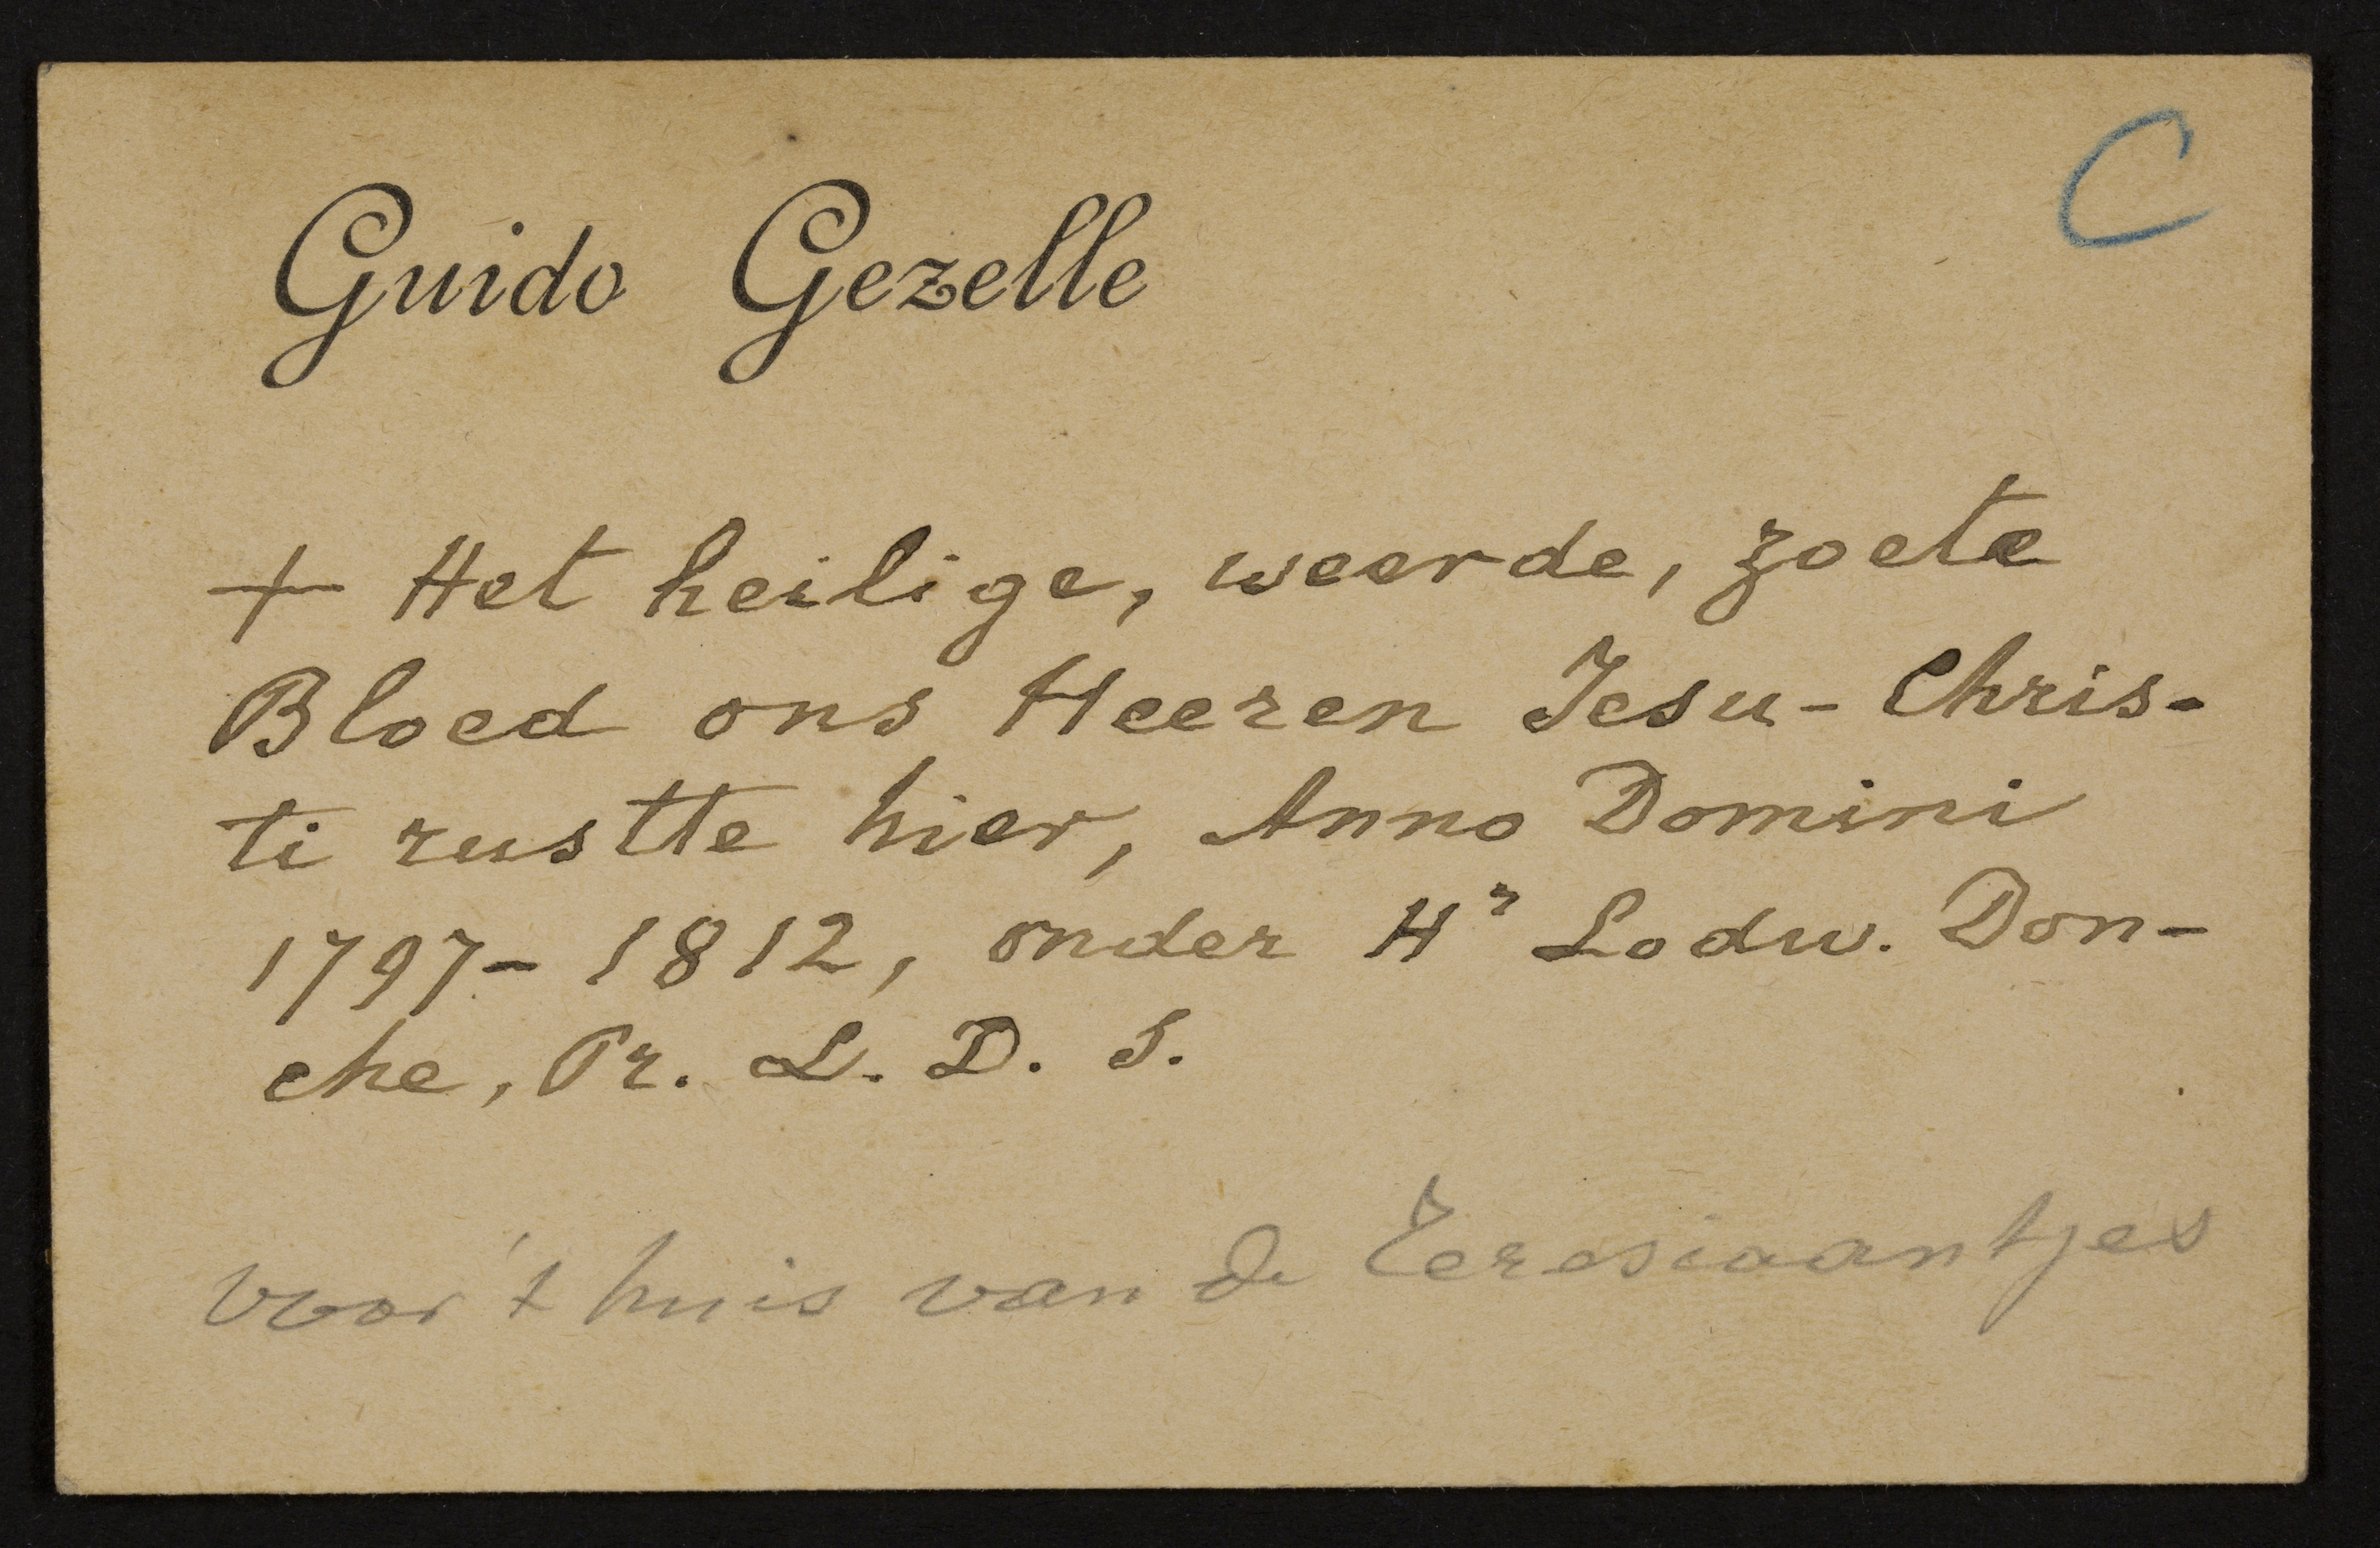 C
Guido Gezelle
+ Het heilige, weerde, zoete
Bloed ons Heeren Jesu-Chris-
ti rustte hier, Anno Domini
1797-1812, onder Hr Lodw. Don-
che, Pr. L. D. S.
voor 't huis van de Teresiaantjes